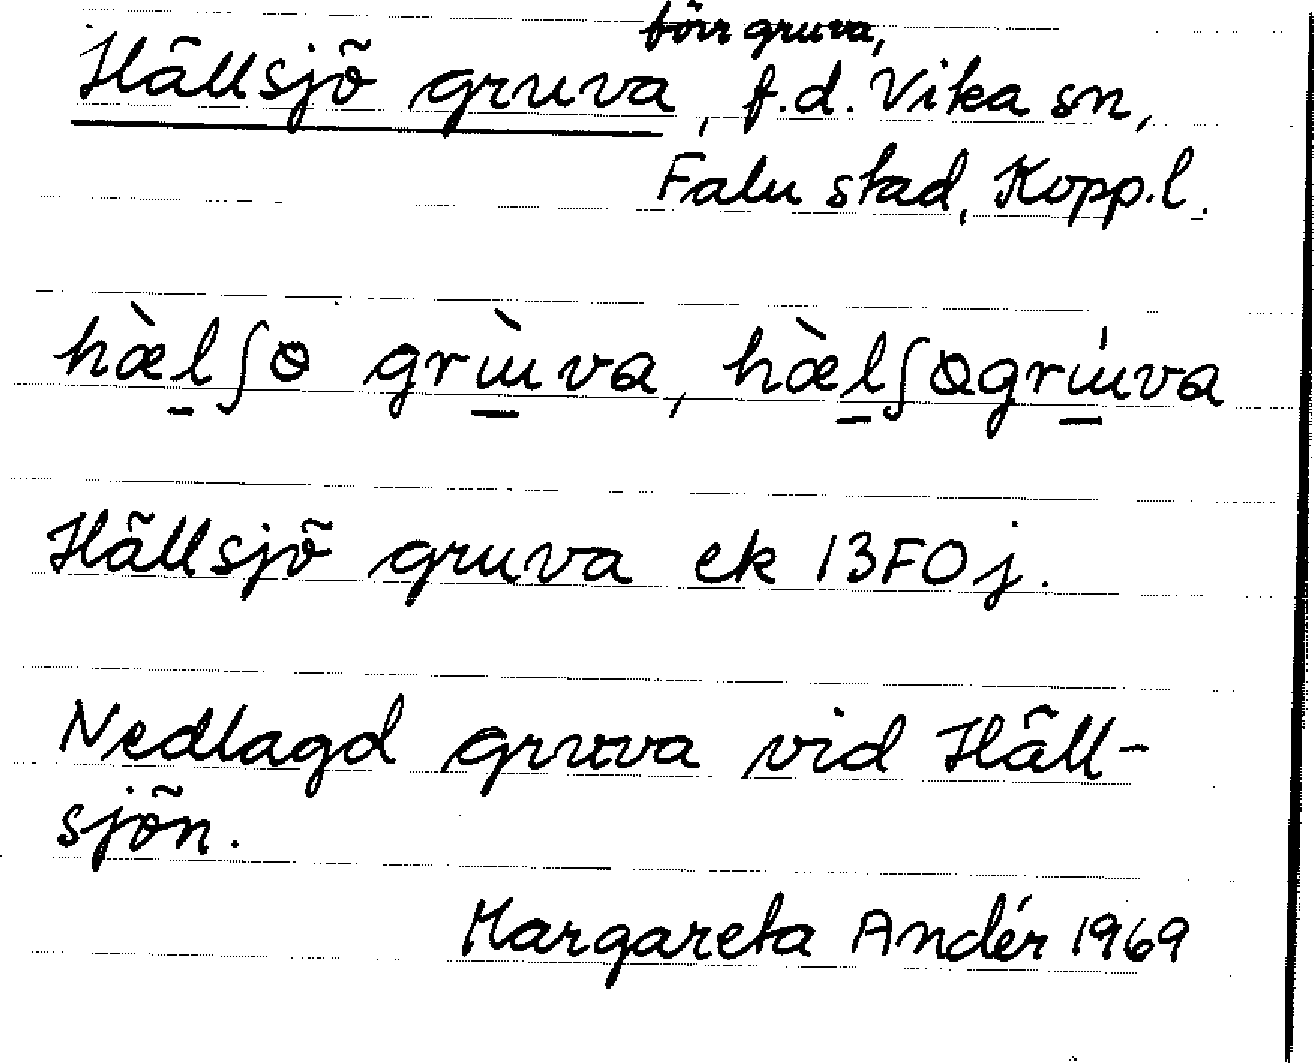 förr gruva,
Hällsjö gruva, f.d. Vika sn,
Falu stad, Kopp.l.
hæ̀lʃɵ grɯ̀va, hæ̀lʃɵgrɯ́va
Hällsjö gruva ek 13F0j.
Nedlagd gruva vid Häll-
sjön.
Margareta Andér 1969